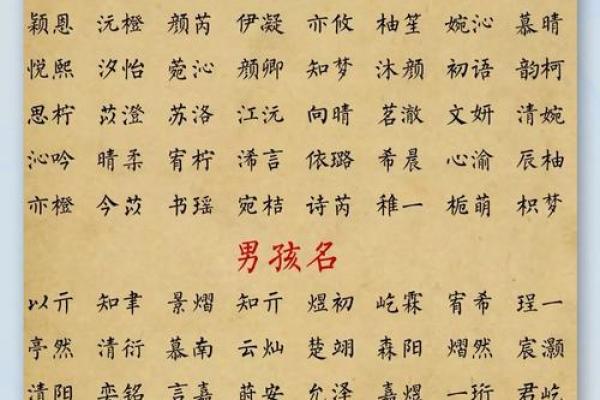 颖恩 沅橙 颜芮 伊凝 亦攸 柚笙 婉沁 慕晴
悦熙 汐怡 菀沁 颜卿 知梦 沐颜 初语 韵柯
思柠 苡澄 苏洛 江沅 向晴 茗澈 文妍 清婉
沁吟 晴柔 宥柠 浠言 依璐 希晨 心渝 辰柚
亦橙 今苡 书瑶 宛桔 诗芮 稚一 栀萌 枳梦
男孩名
以亓 知聿 景熠 知亓 煜初 屹霖 宥希 珵一
亭然 清衍 慕南 云灿 楚翊 森阳 熠然 宸灏
清阳 奕铭 言嘉 莳安 允泽 嘉煜 一珩 君屹